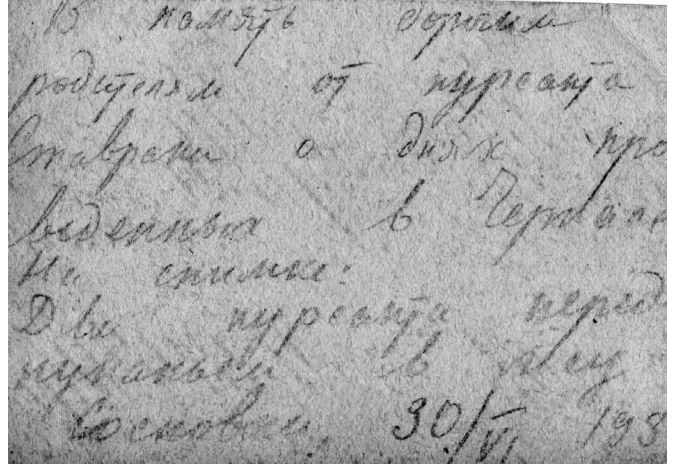 В память дорогим
родителям от курсанта
о днях про
веденных в
На снимке:
Два курсанта перед
в лесу
Сосновки 30/VI 193